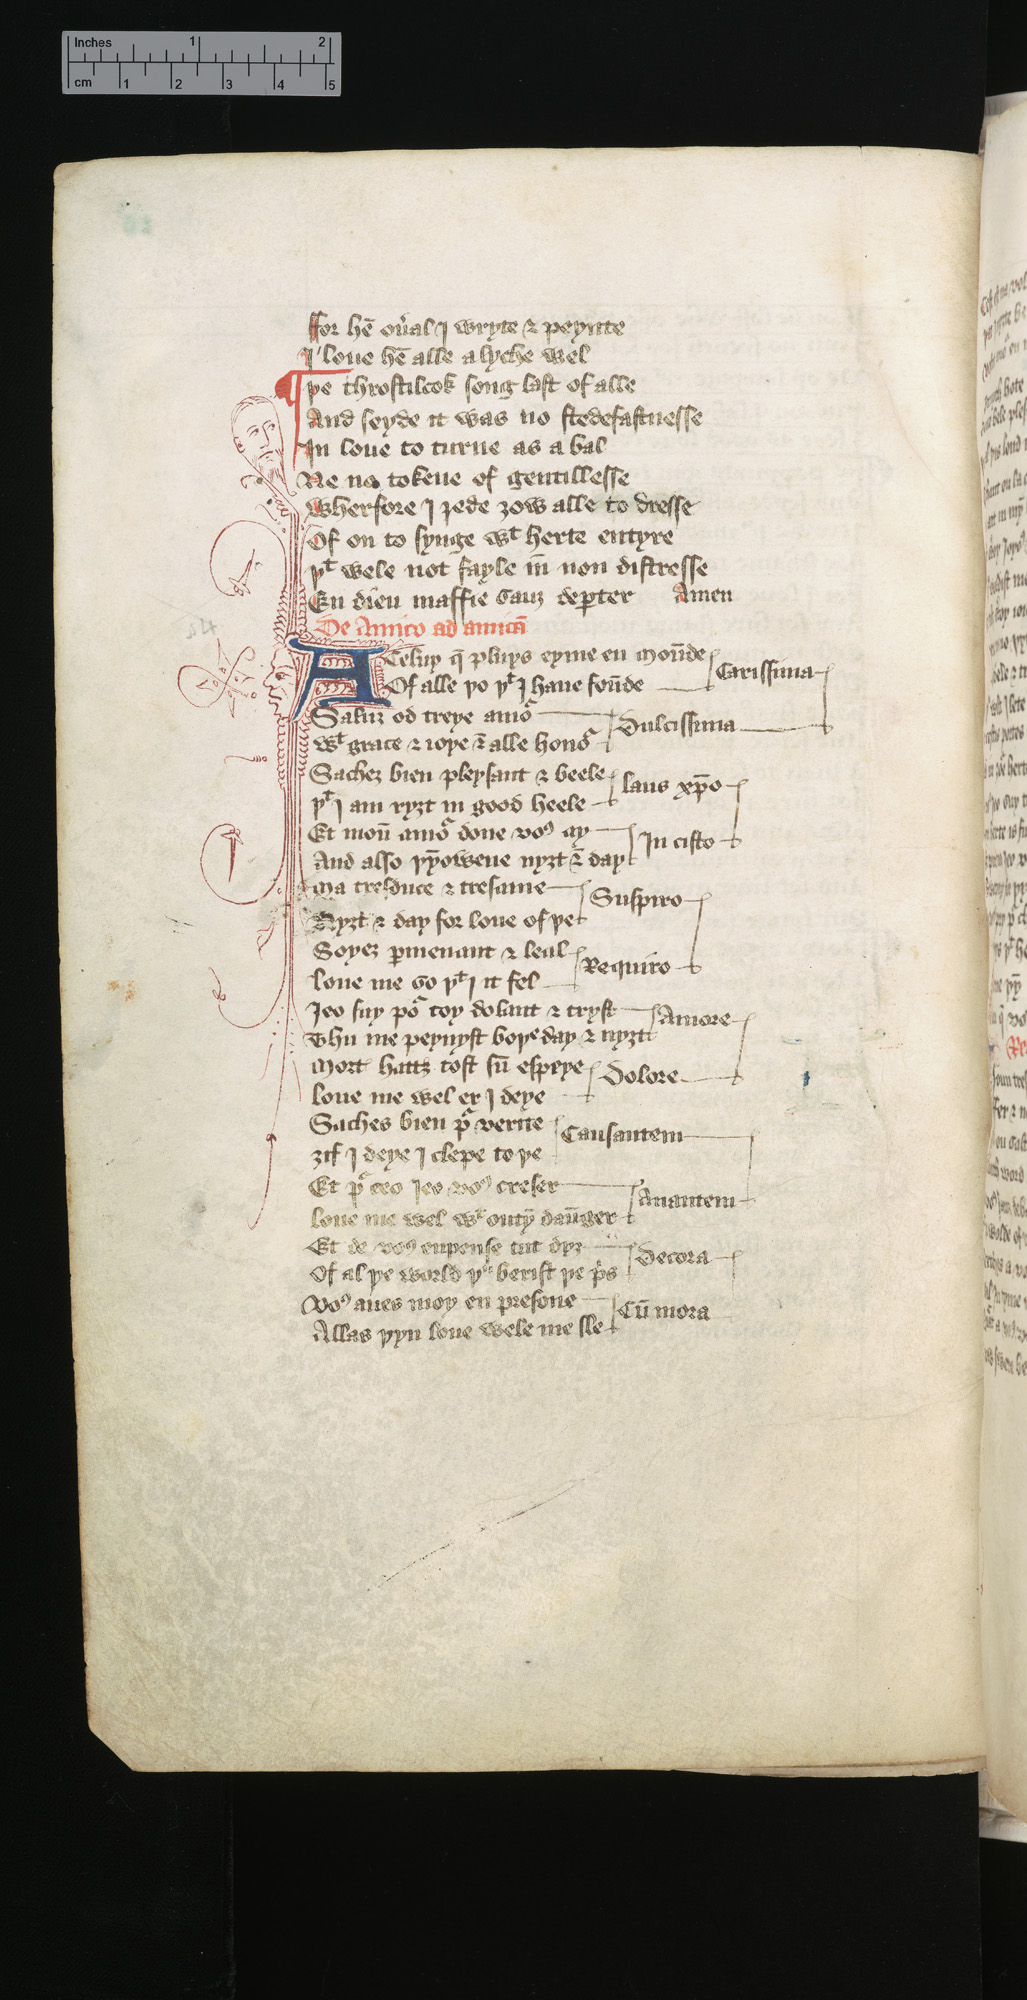 Inches 1 2
cm 1 2 3 4 5
ffor hē ou̓al I wryte ⁊ peynte
I loue hē alle a lyche wel
¶ þe throstilcok song last of alle
And seyde it was no stedefastnesse
In loue to turne as a bal
Ne no tokene of gentillesse
Wherfore I rede ȝow alle to dresse
Of on to synge wᵗ herte entyre
þᵗ wele not fayle in̄ non distresse
En dieu maffie sanz deꝑter Amen
De Amico ad amicā
A Celuy q̄ pluys eyme en mou̅de
Of alle þo þᵗ I haue fou̅de Carissima
Saluz od treye amoᷣ
Wᵗ grace ⁊ ioye ⁊ alle honoᷣ Dulcissima
Sachez bien pleysant ⁊ beele
þᵗ I am ryȝt in good heele laus xp̄o
Et mou̅ amoᷣ done voꝰ ay
And also þȳ owene nyȝt ⁊ day In cisto
Ma tresduce ⁊ tresame
Nyȝt ⁊ day for loue of þe Suspiro
Soyez ꝑmenant ⁊ leal
loue me so þᵗ I it fel Requiro
Jeo suy poᷣ toy dolant ⁊ tryst
Thu me peynyst boþe day ⁊ nyȝt Amore
Mort hattz tost su̅ espeye
loue me wel er I deye Dolore
Saches bien pᷣ verite
ȝif I deye I clepe to þe Causantem
Et pᷣ ceo Jeo voꝰ creser
loue me wel wᵗ outȳ dau̅ger Amantem
Et de voꝰ enpense tut dyz
Of al þe world þᵘ berist þe p̓s Decora
Voꝰ aues moy en presone
Allas þyn loue wele me sle Cū mora